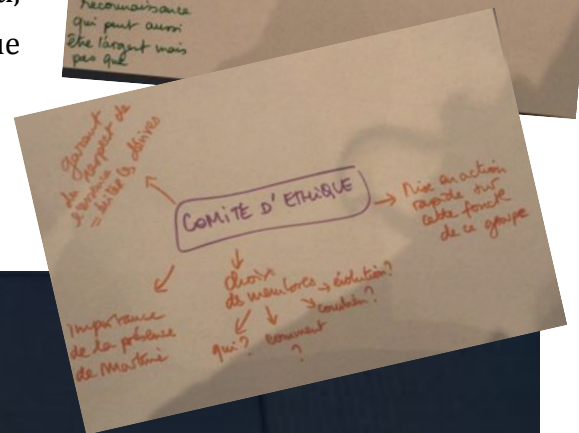 reconnaissance
qui peut aussi
être l'argent mais
pas que
ue
garant
du respect de
= éviter les dérives
COMITÉ D'ETHIQUE
Mise en action
rapide sur
cette
de ce groupe
choix
de membres → évolution?
→ combien?
qui? comment
?
Importance
de la présence
de Martine